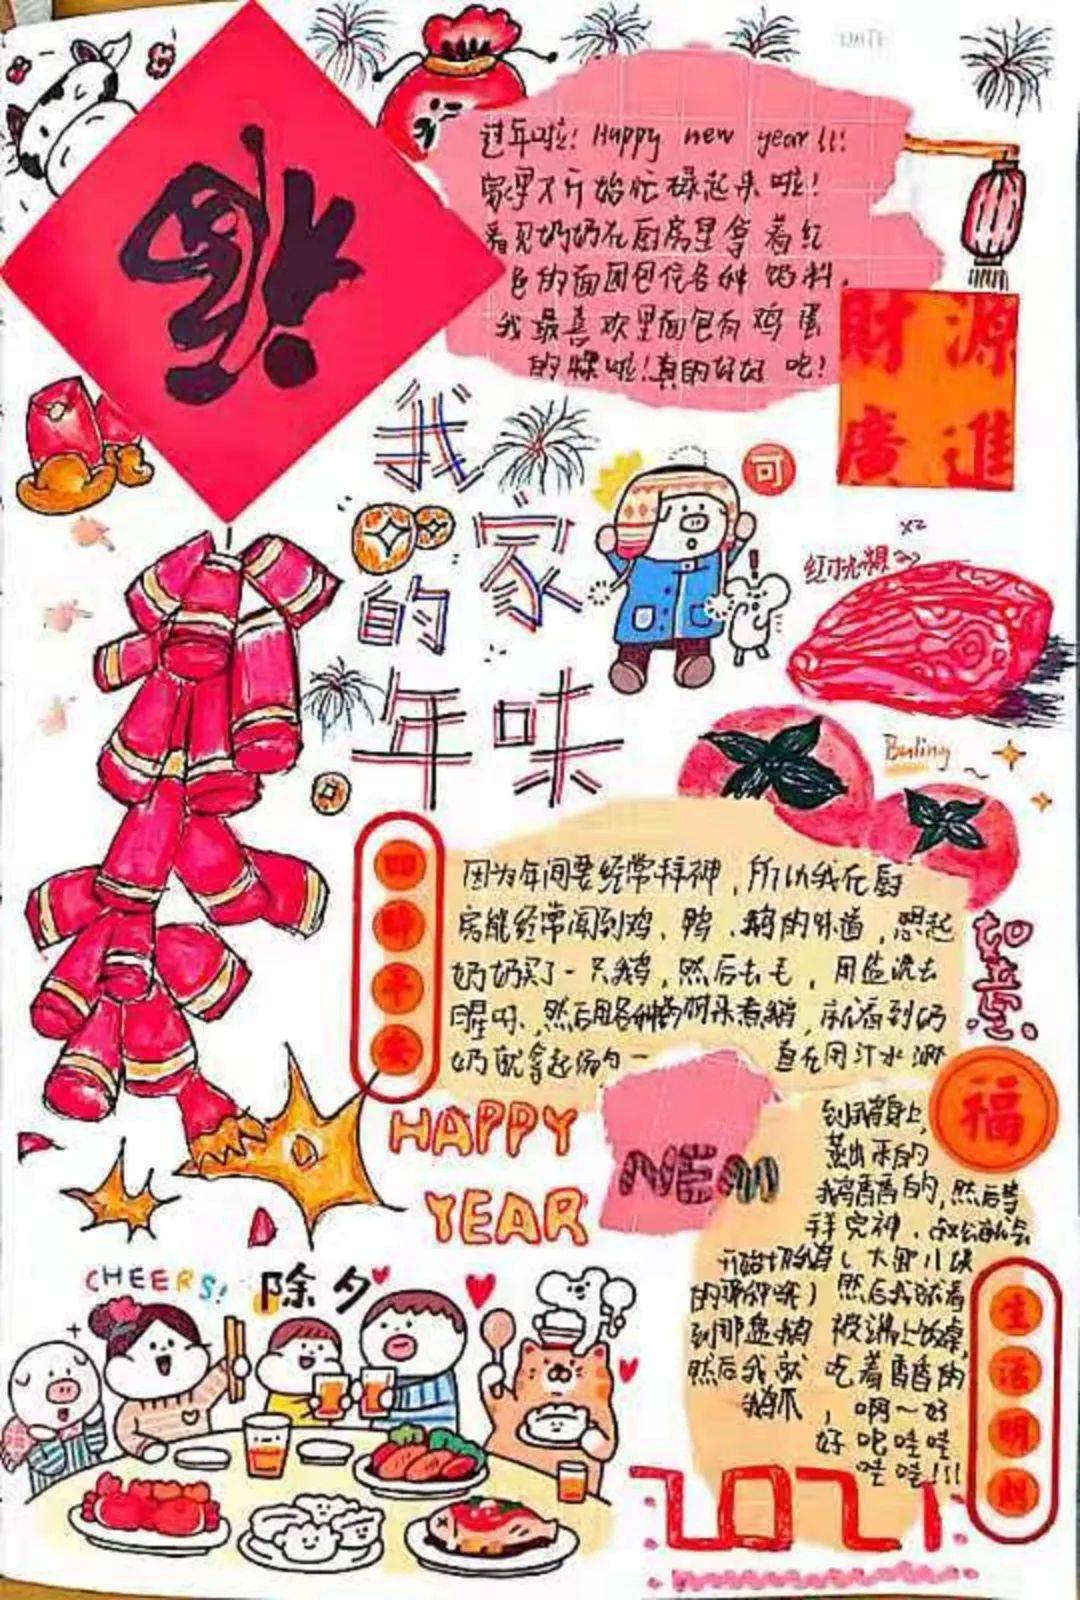 DATE
福
过年啦！Happy new year!!!
家里又开始忙碌起来啦！
看见奶奶在厨房里拿着红
色的面团包住各种馅料，
我最喜欢里面包有鸡蛋
的粿啦！真的好好吃！
財源
廣進
我家的年味
可
x2
红桃粿
Buling
~
因为年间要经常拜神，所以我在厨
房能经常闻到鸡、鸭、鹅的味道，想起
奶奶买了一只鹅，然后去毛，用盐洗去
腥味，然后用各种香料来煮鹅，就看到奶
奶就拿起汤勺一直在用汁水淋
到鹅身上，
蒸出来的
鹅香香的，然后等
拜完神，叔公就会
开始切鹅（大卸八块
的那种哦）然后我就看
到那盘鹅被端上饭桌，
然后我就吃着香香的
鹅爪，啊～好
好吃哇哇
哇哇!!!
四
季
平
安
如意
福
HAPPY
NEW
YEAR
CHEERS!
除夕
生
活
明
朗
2021